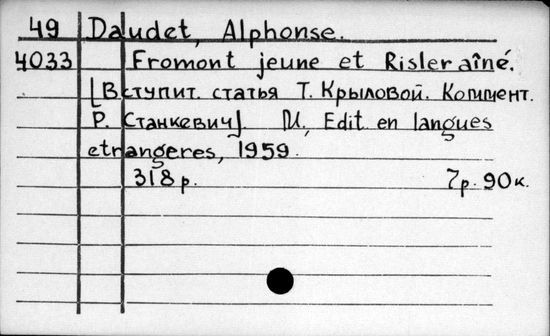 49 Daudet, Alphonse.
4033 Fromont jeune et Risler aîné.
[Вступит. статья Т. Крыловой. Коммент.
Р. Станкевич]. М., Edit. en langues
etrangeres, 1959.
318 p. 7р. 90к.